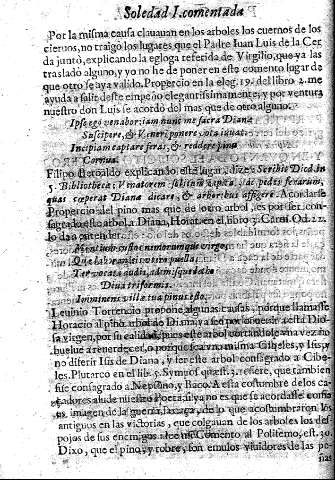 Soledad I. comentada
Por la misma causa clauauan en los arboles los cuernos de los
cieruos, no traigo los lugares que el Padre Iuan Luis de la Cer
da juntò, explicando la egloga referida de Virgilio, que ya las
trasladò alguno, y yo no he de poner en este comento lugar de
que otro se aya valido. Propercio en la eleg. 19. del libro 2. me
ayuda a salir deste empeño elegantissimamente, y por ventura
nuestro don Luis se acordò del mas que de otro alguno.
Ipse ego venabor: iam nunc me sacra Diana
Suscipere, & Veneri ponere vota iuuat.
Incipiam captare feras, & reddere pinu
Cornua.
Filipo Beroaldo explicando este lugar, dize: Scribit Diod. in
5. Bibliotheca: Venatorem solitum capita, ac pedes ferarum,
quas cœperat Diana dicare, & arboribus affigere. Acordase
Propercio del pino mas que de otro arbol, es por ser con-
sagrado este arbol a Diana, Horat. en el libro 3. Carm. Od. 22.
lo da a entender.
Montium custos nemorumque virgo,
Quæ laborantes vtero puellas
Ter vocata audis, adimisque
Diua triformis.
Imminens villæ tua pinus esto.
Leuinio Torrencio propone algunas causas, porque llamasse
Horacio al pino arbol de Diana,
sa virgen, por su calidad, pues este arbol cortandole vna vez no
buelue a reuerdecer, o porque sea vna misma Cibeles, y Isis,
no diferir Isis de Diana, y ser este arbol consagrado a Cibe-
les. Plutarco en el lib. 5. Sympos. quæst. 3. refiere, que tambien
fue consagrado a Neptuno, y Baco. A esta costumbre de los ca-
çadores alude nuestro Poeta, si ya no es que se acordasse como
es imagen de la guerra la caça, de lo que acostumbraron los
antiguos en las victorias, que colgauan de los arboles los des-
pojos de sus enemigos comento al Polifemo, est. 30.
Dixo, que el pino, y robre, son emulos viuidores de las pe-
ñas